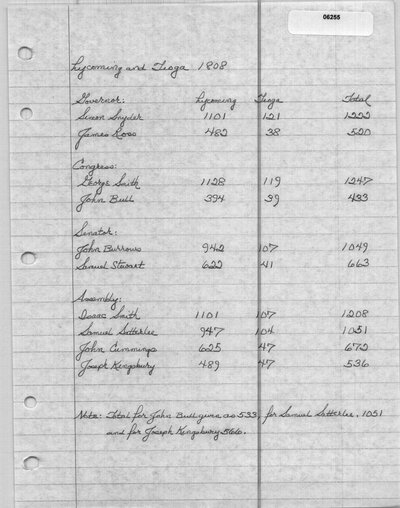 06255
Lycoming and Tioga 1808
Governor: Lycoming Tioga Total
Simon Snyder 1101 121 1222
James Ross 482 38 520
Congress:
George Smith 1128 119 1247
John Bull 394 39 433
Senator:
John Burrows 942 107 1049
Samuel Stewart 622 41 663
Assembly:
Isaac Smith 1101 107 1208
Samuel Satterlee 947 104 1051
John Cummings 625 47 672
Joseph Kingsbury 489 47 536
Note: Total for John Bull given as 533, for Samuel Satterlee, 1051
and for Joseph Kingsbury 566.